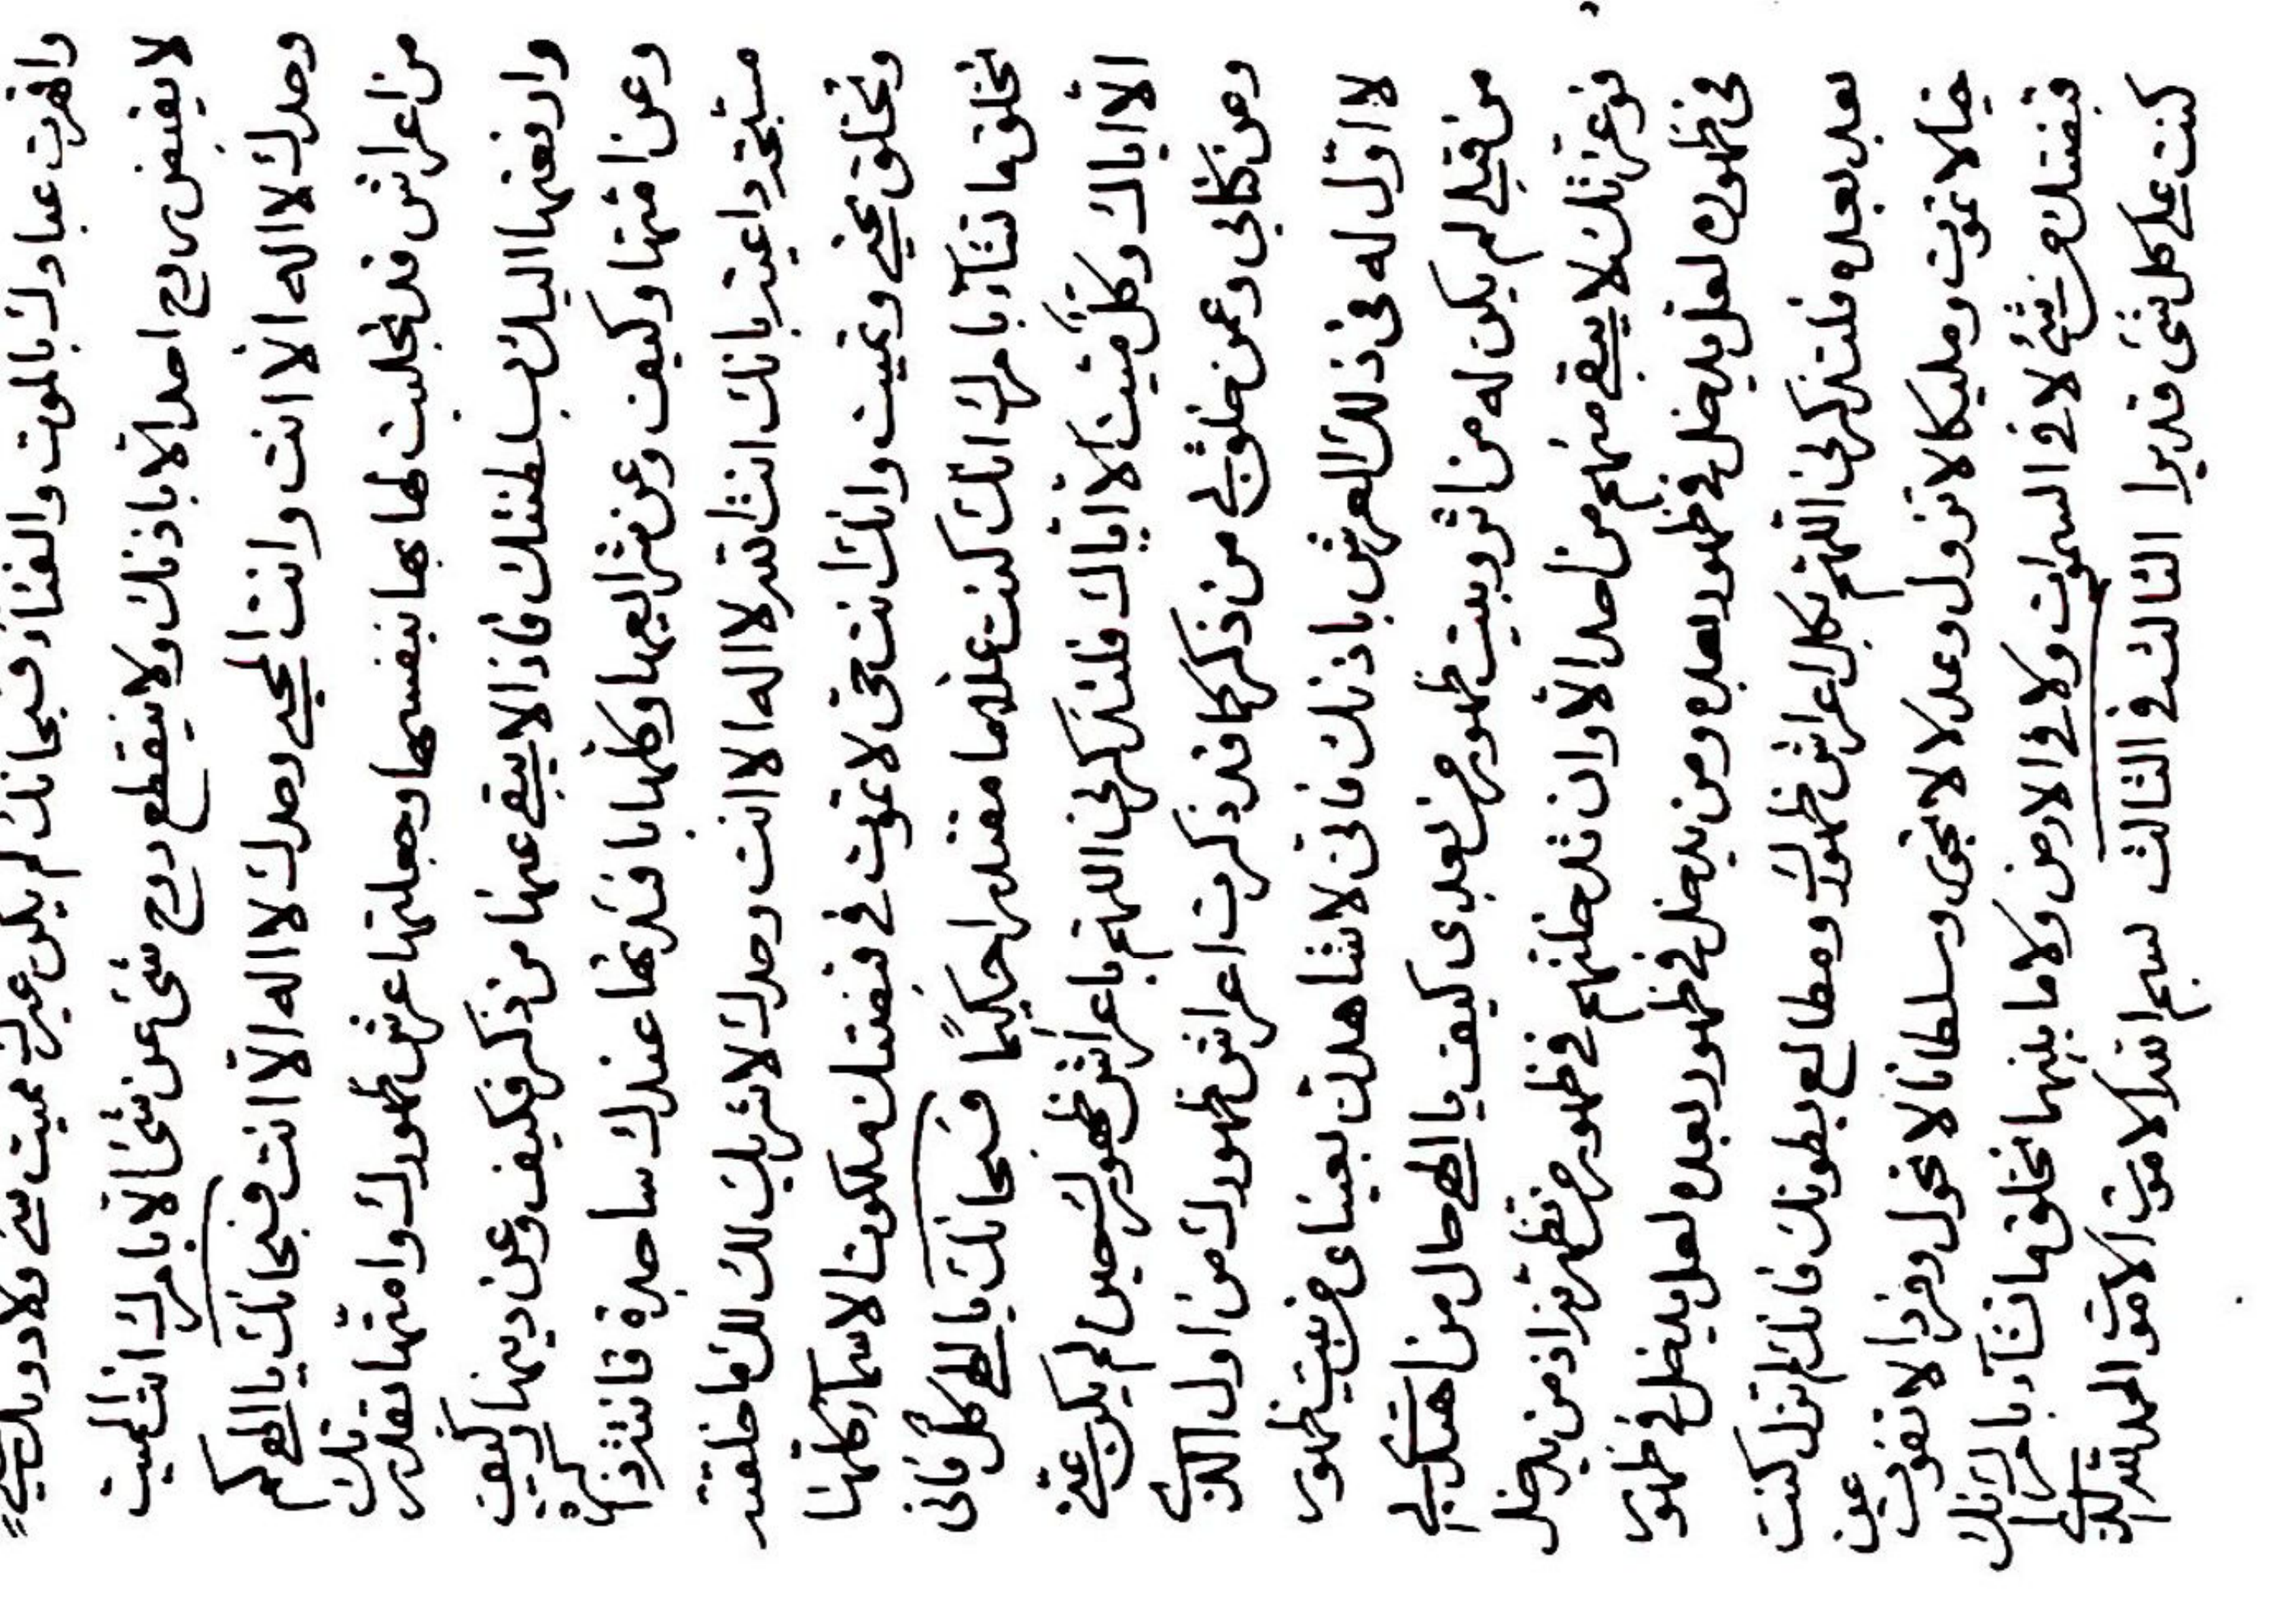 واقهرت عبادك بالموت والفناء فسبحانك لم يكن غيرك مميت شئ ولا دونك
لا يقبض روح احد الا باذنك ولا ينقطع روح شئ عن شئ الا بامرك انت المميت
وحدك لا اله الا انت وانت المحيي وحدك لا اله الا انت فسبحانك يا الهي كم
من اعراش قد تجليت لها بها بنفسها وجعلتها عرش ظهورك وامتها بقدرتك
وارفعتها اليك بسلطنتك فاذا لا يبقى عنها من ذكر فكيف وعن دينها وكيف
وعن امتها وكيف وعن شرايعها وكلها عندك ساجدة قانتة ذاكرة
مسبحة داعية بانك انت الله لا اله الا انت وحدك لا شريك لك لك ما خلقته
وتخلق تحيي وتميت وانك انت حي لا تموت في قبضتك ملكوت الاسمآء كلها
تخلق ما تشآء بامرك انك كنت علاما مقتدرا حكيمًا فسبحانك يا الهي كل فاني
الّا اياك وكلّ ميّت الا ايّاك فلتذكرن اللهم باعراش ظهورك حين لم يكن عنه
ومن كتابي وعمن خلق لي من ذكر كما قد ذكرت اعراش ظهورك من اول الذي
لا اوّل له في ذلك العرش باذنك فاني لاشاهدن بعيناى من بيت ظهور
من قبلي لم يكن له من اثر وبيت ظهور من بعدى كيف يا الهي حال من اهتدى بي
فوعزتك لا يبقى منهم من احد الا وان تدخلنهم في ظهور من تظهرنه اذ من يدخل
في ظهورى لعل يدخل في ظهور بعده ومن يدخل في ظهور بعده لعل يدخل في ظهور
بعد بعده فلتذكرن اللهم بكل اعراش ظهورك ومطالع بطونك فانك لم تزل كنت
حيا لا تموت ومليكا لا تزول وعدلا لا تجور وسلطانا لا تحول وفردا لا يفوت عن
قبضتك من شئ لا في السموات ولا في الارض ولا ما بينهما تخلق ما تشآء بامرك انك
كنت على كل شئ قديرا الثالث في الثالث بسم الله الاموت الاموت الحمد لله الذي